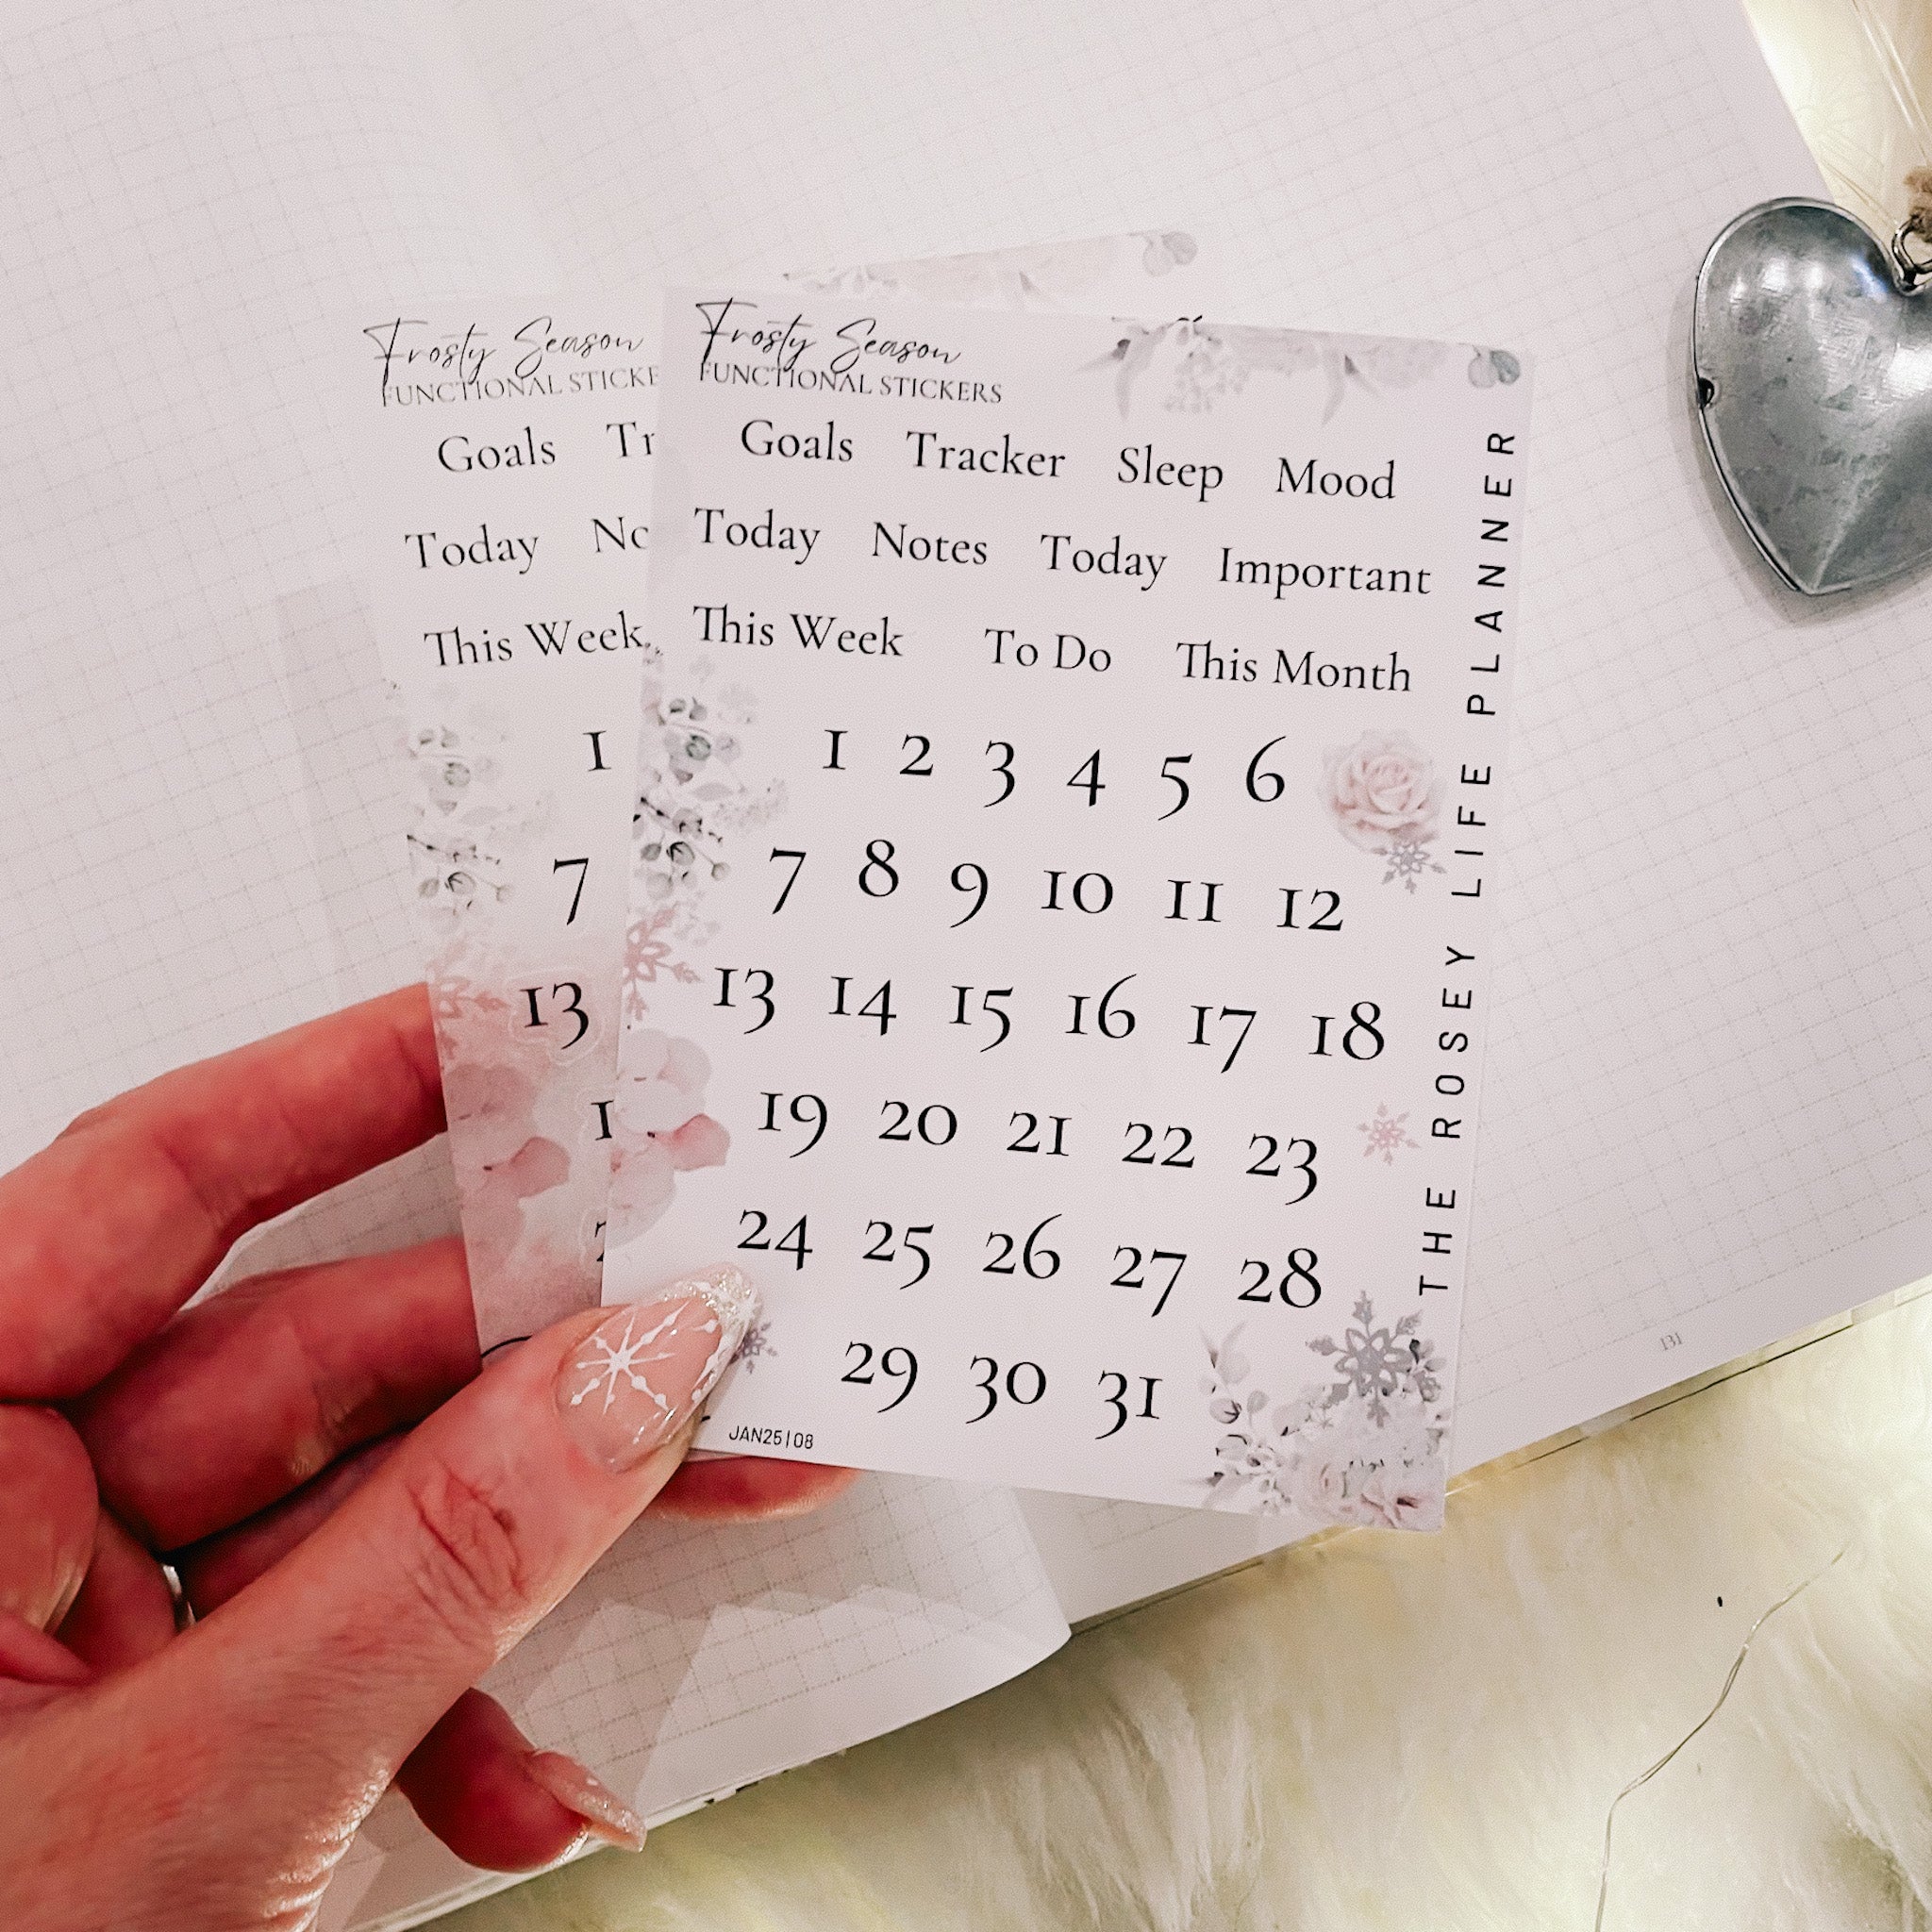 Frosty Season
FUNCTIONAL STICKE
Goals Tr
Today No
This Week
1
7
13
1
Frosty Season
FUNCTIONAL STICKERS
Goals Tracker Sleep Mood
Today Notes Today Important
This Week To Do This Month
1 2 3 4 5 6
7 8 9 10 11 12
13 14 15 16 17 18
19 20 21 22 23
24 25 26 27 28
29 30 31
JAN25|08
THE ROSEY LIFE PLANNER
131